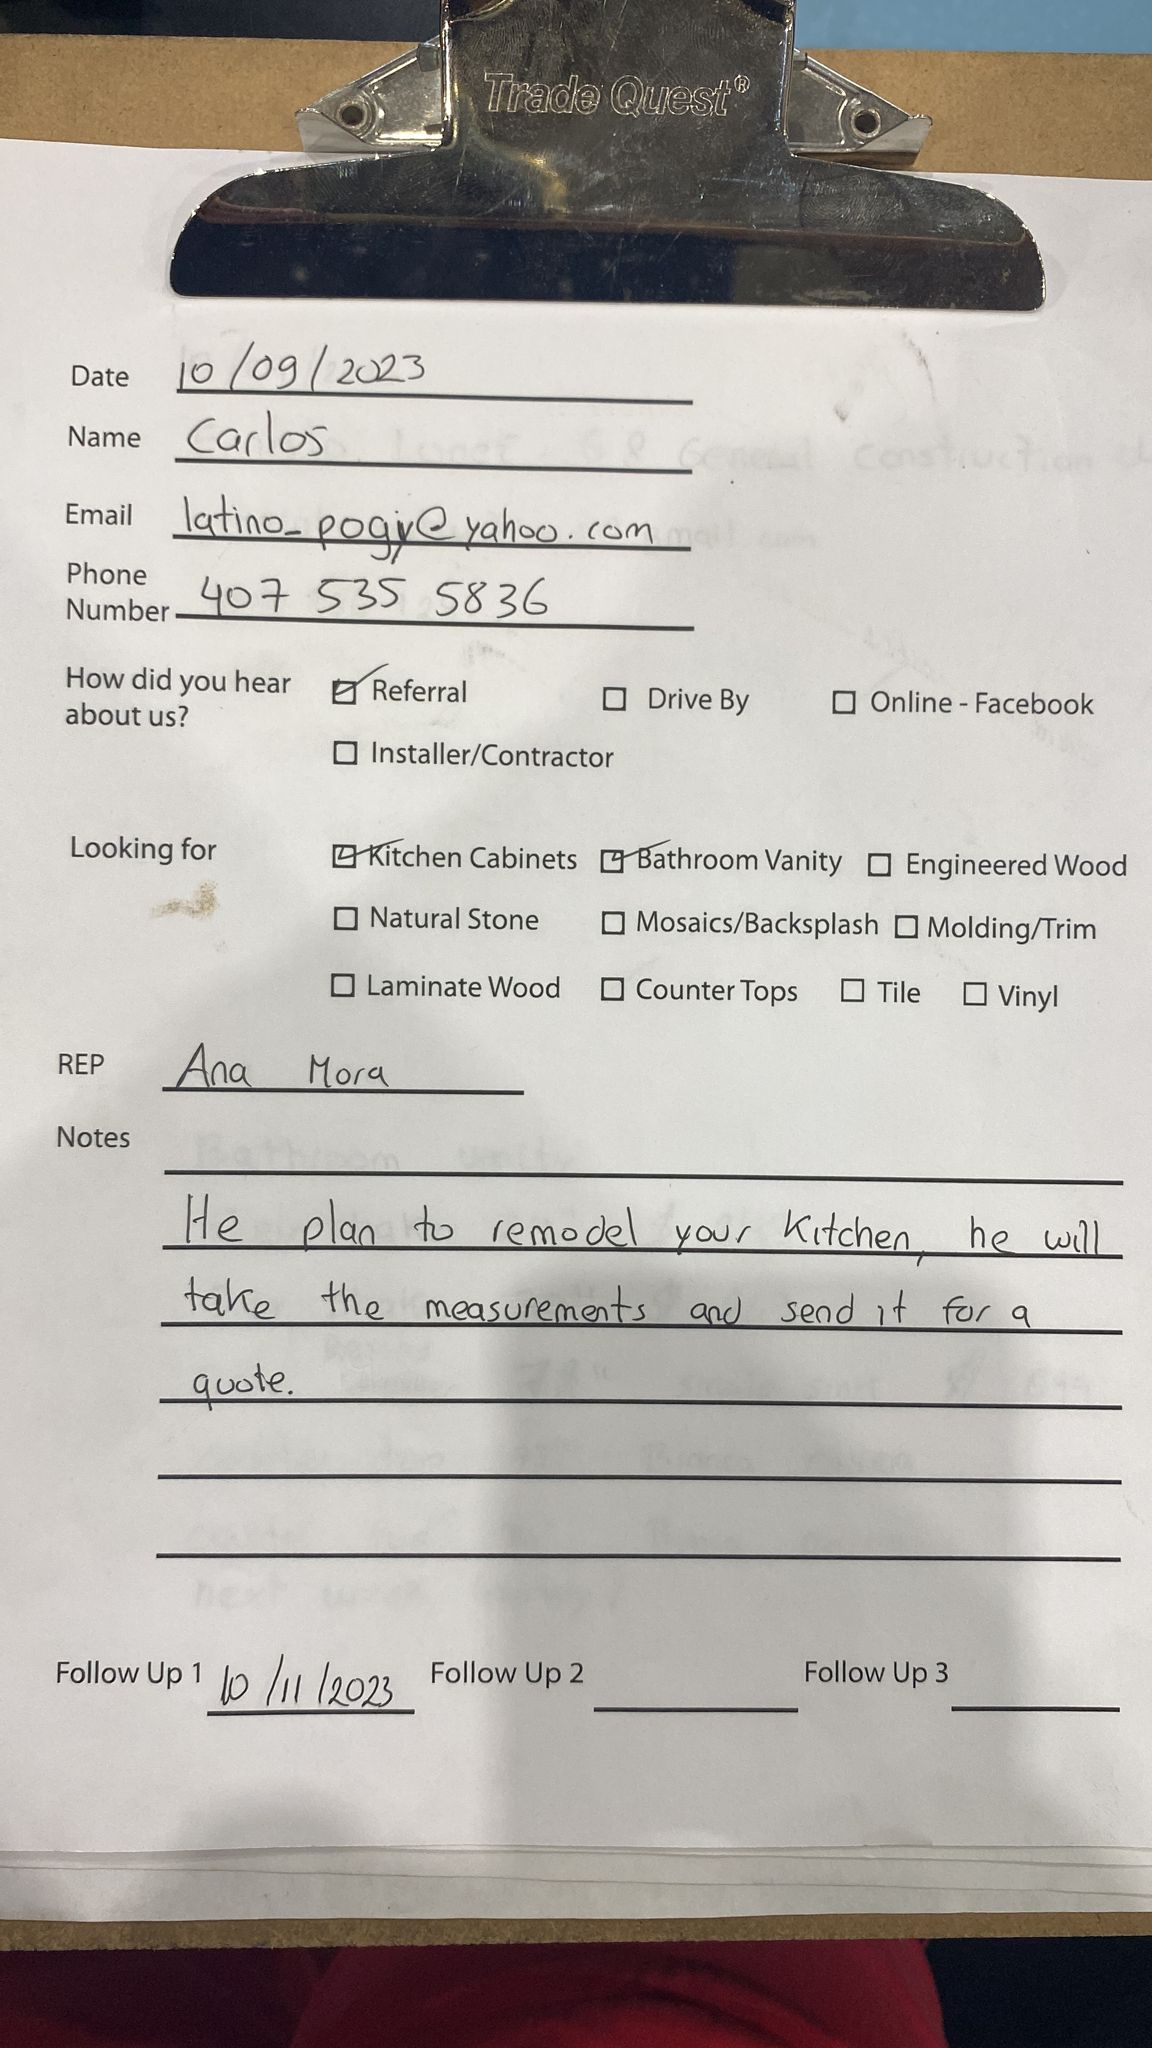 Trade Quest®
Date 10/09/2023
Name Carlos
Email latino_pogy@yahoo.com
Phone
Number 407 535 5836
How did you hear
about us?
Referral Drive By Online - Facebook
Installer/Contractor
Looking for
Kitchen Cabinets Bathroom Vanity Engineered Wood
Natural Stone Mosaics/Backsplash Molding/Trim
Laminate Wood Counter Tops Tile Vinyl
REP Ana Mora
Notes
He plan to remodel your Kitchen, he will
take the measurements and send it for a
quote.
Follow Up 1 10/11/2023 Follow Up 2 Follow Up 3